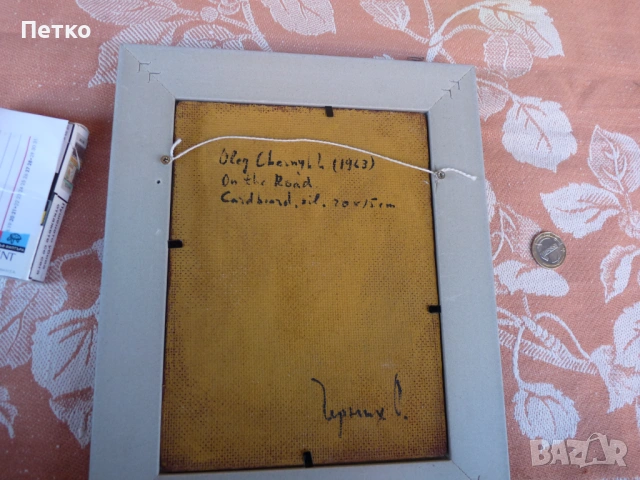 Петко
Oleg Chernykh. (1963)
On the Road
Cardboard, oil. 20x15cm
Черных О.
BAZAR